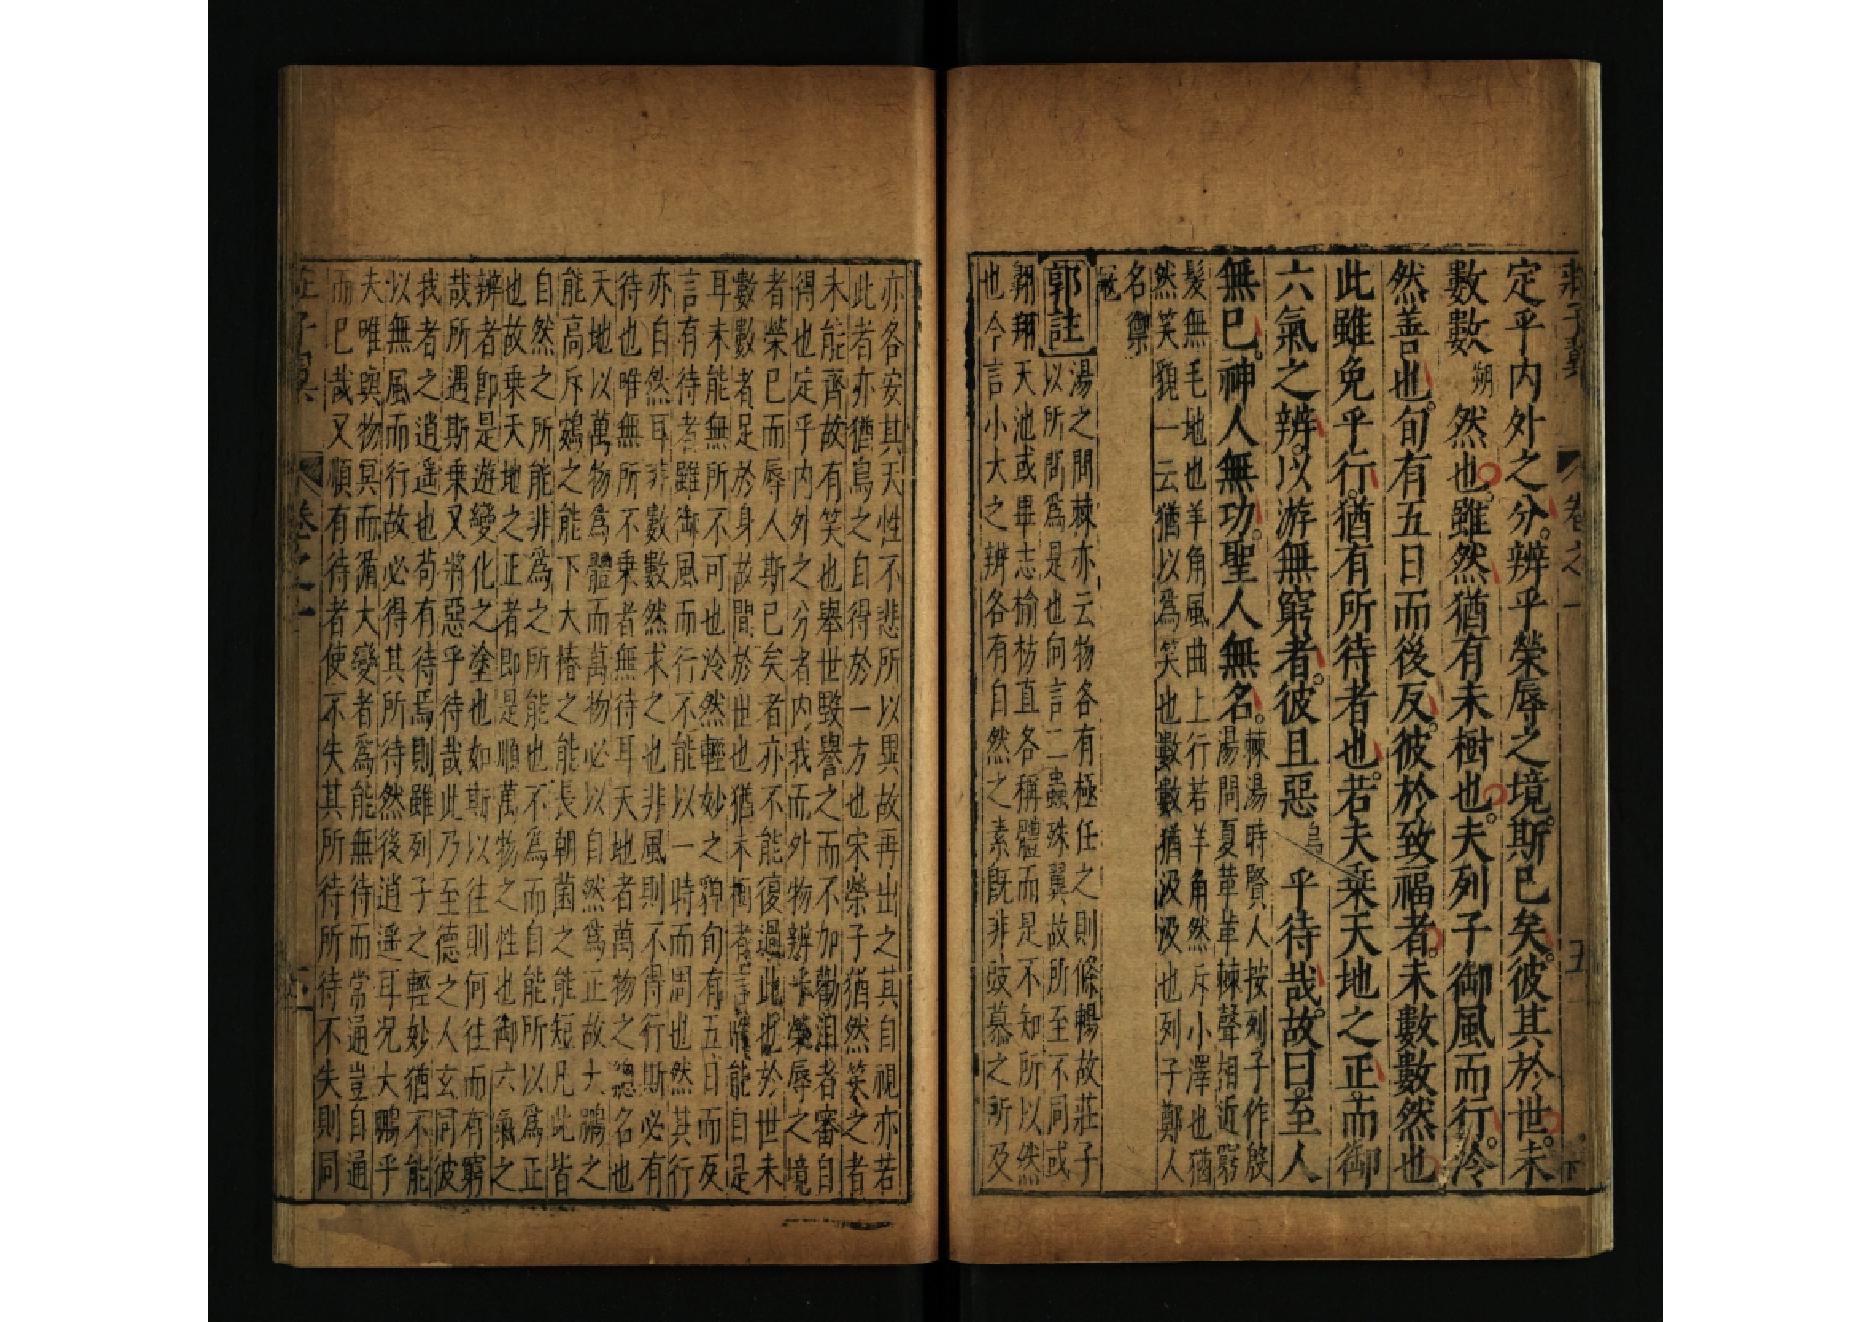 莊子翼 卷之一 五 下
定乎內外之分辨乎榮辱之境斯已矣彼其於世未
數數朔然也雖然猶有未樹也夫列子御風而行泠
然善也旬有五日而後反彼於致福者未數數然也
此雖免乎行猶有所待者也若夫乘天地之正而御
六氣之辨以游無窮者彼且惡烏乎待哉故曰至人
無已神人無功聖人無名
棘湯時賢人按列子作殷
湯問夏革革棘聲相近窮
髮無毛地也羊角風曲上行若羊角然斥小澤也猶
然笑貌一云猶以為笑也數數猶汲汲也列子鄭人
名禦
寇
郭註
湯之問棘亦云物各有極任之則條暢故莊子
以所問為是也向言二蟲殊翼故所至不同或
翱翔天池或畢志榆枋直各稱體而是不知所以然
也今言小大之辨各有自然之素既非跂慕之所及
亦各安其天性不悲所以異故再出之其自視亦若
此者亦猶鳥之自得於一方也宋榮子猶然笑之者
未能齊故有笑也舉世毀譽之而不加勸沮者審自
得也定乎內外之分者內我而外物辨乎榮辱之境
者榮已而辱人斯已矣者亦不能復過此也於世未
數數者足於身故間於世也猶未樹者言能自足
耳未能無所不可也泠然輕妙之貌旬有五日而反
言有待者雖御風而行不能以一時而周也然其行
亦自然耳非數數然求之也非風則不得行斯必有
待也唯無所不乘者無待耳天地者萬物之總名也
天地以萬物為體而萬物必以自然為正故大鵬之
能高斥鷃之能下大椿之能長朝菌之能短凡此皆
自然之所能非為之所能也不為而自能所以為正
也故乘天地之正者即是順萬物之性也御六氣之
辨者即是遊變化之塗也如斯以往則何往而有窮
哉所遇斯乘又將惡乎待哉此乃至德之人玄同彼
我者之逍遙也苟有待焉則雖列子之輕妙猶不能
以無風而行故必得其所待然後逍遙耳况大鵬乎
夫唯與物冥而循大變者為能無待而常通豈自通
而已哉又順有待者使不失其所待所待不失則同
莊子翼 卷之一